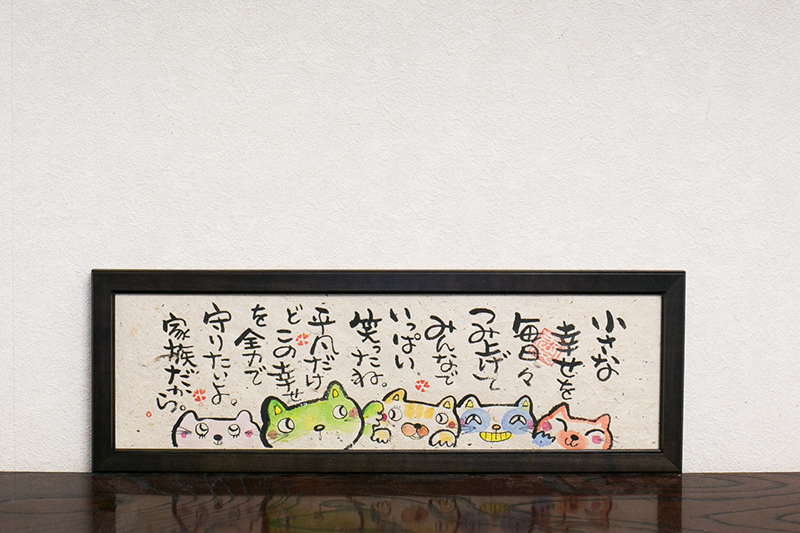 小さな
幸せを
毎日々
つみ上げて
みんなで
いっぱい
笑ったね。
平凡だけ
どこの幸せ
を全力で
守りたいよ。
家族だから。